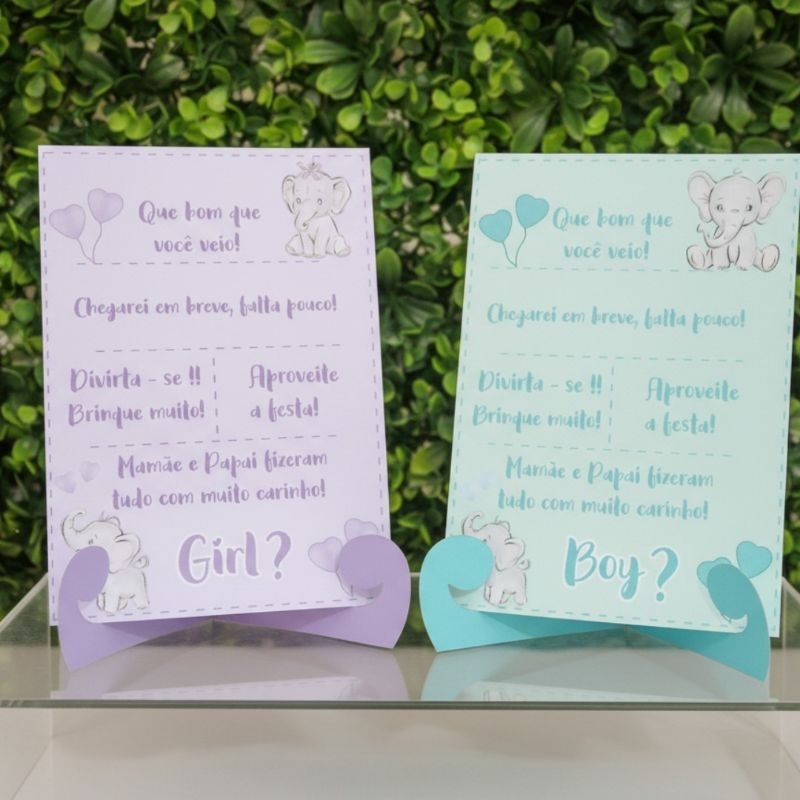 Que bom que
você veio!
Chegarei em breve, falta pouco!
Divirta - se !!
Brinque muito!
Aproveite
a festa!
Mamãe e Papai fizeram
tudo com muito carinho!
Girl?
Que bom que
você veio!
Chegarei em breve, falta pouco!
Divirta - se !!
Brinque muito!
Aproveite
a festa!
Mamãe e Papai fizeram
tudo com muito carinho!
Boy?